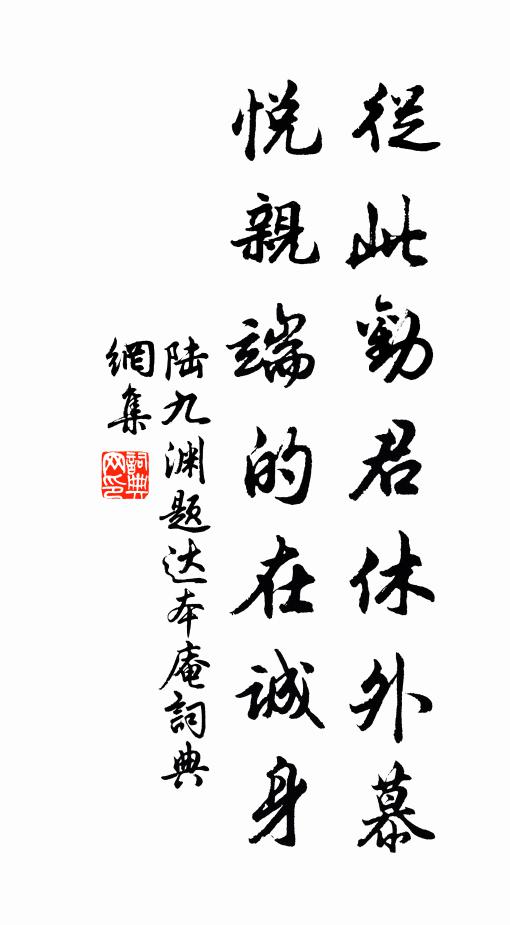 從此勸君休外慕
悅親端的在誠身
陆九渊题达本庵詞典
網集
詞典網印